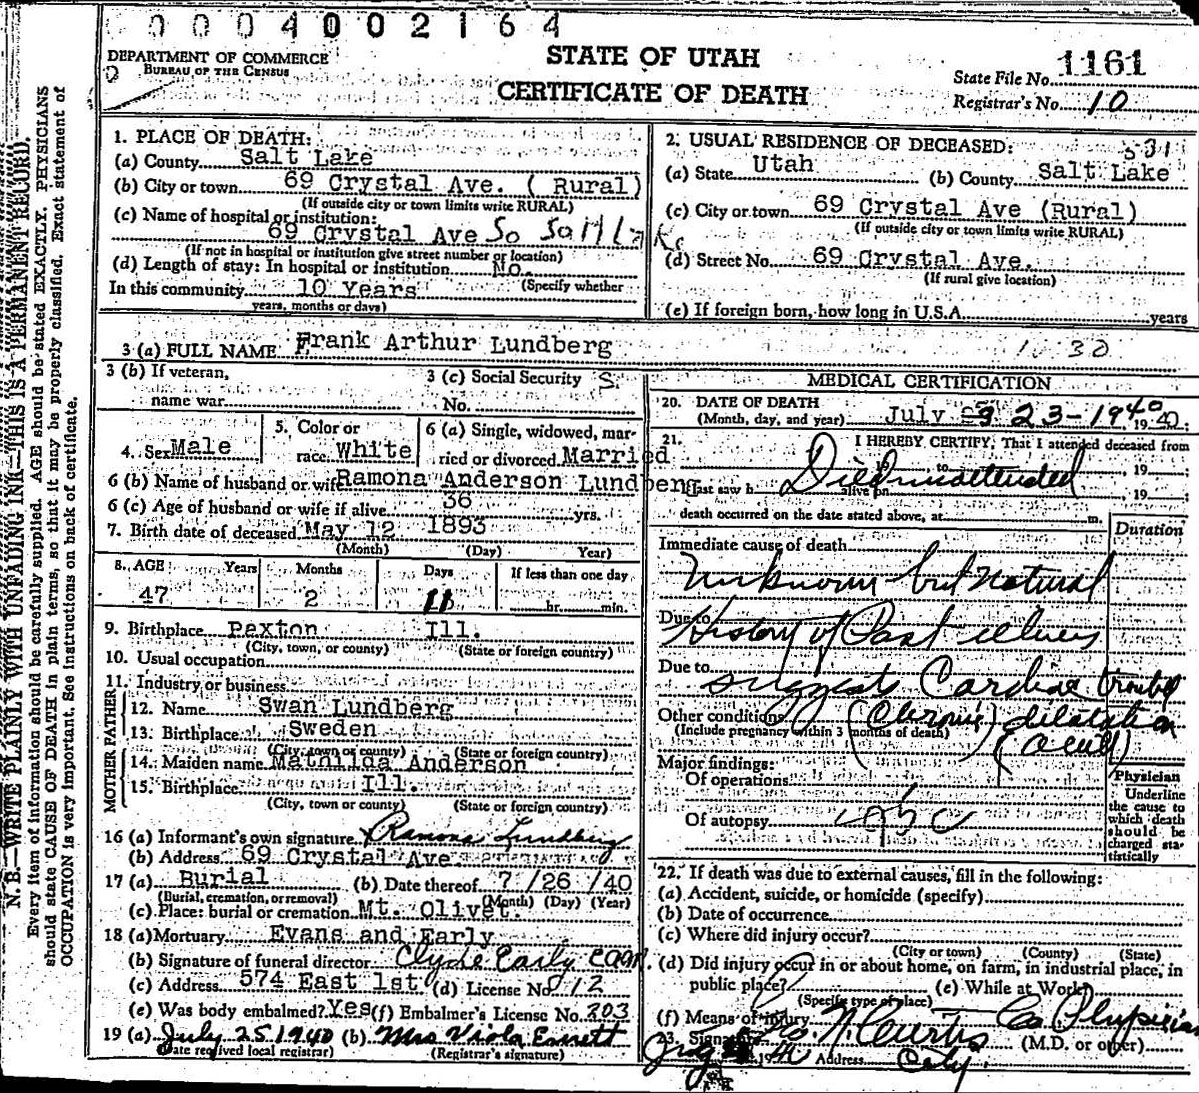 0004002164
DEPARTMENT OF COMMERCE
BUREAU OF THE CENSUS
STATE OF UTAH
CERTIFICATE OF DEATH
State File No. 1161
Registrar's No. 10
N. B.—WRITE PLAINLY WITH UNFADING INK—THIS IS A PERMANENT RECORD.
Every item of information should be carefully supplied. AGE should be stated EXACTLY. PHYSICIANS
should state CAUSE OF DEATH in plain terms, so that it may be properly classified. Exact statement of
OCCUPATION is very important. See instructions on back of certificate.
1. PLACE OF DEATH:
(a) County Salt Lake
(b) City or town 69 Crystal Ave. ( Rural)
(If outside city or town limits write RURAL)
(c) Name of hospital or institution:
69 Crystal Ave So Salt Lake
(If not in hospital or institution give street number or location)
(d) Length of stay: In hospital or institution No.
(Specify whether
In this community 10 Years
years, months or days)
2. USUAL RESIDENCE OF DECEASED:
(a) State Utah (b) County Salt Lake
(c) City or town 69 Crystal Ave (Rural)
(If outside city or town limits write RURAL)
(d) Street No. 69 Crystal Ave.
(If rural give location)
(e) If foreign born, how long in U.S.A. years
3 (a) FULL NAME Frank Arthur Lundberg
3 (b) If veteran,
name war
3 (c) Social Security
No.
4. Sex Male
5. Color or
race White
6 (a) Single, widowed, mar-
ried or divorced Married
6 (b) Name of husband or wife Ramona Anderson Lundberg
6 (c) Age of husband or wife if alive 36 yrs.
7. Birth date of deceased May 12 1893
(Month) (Day) Year)
8. AGE Years Months Days If less than one day
47 2 11 hr. min.
9. Birthplace Paxton Ill.
(City, town, or county) (State or foreign country)
10. Usual occupation
11. Industry or business
FATHER
12. Name Swan Lundberg
13. Birthplace Sweden
(City, town or county) (State or foreign country)
MOTHER
14. Maiden name Mathilda Anderson
15. Birthplace Ill.
(City, town or county) (State or foreign country)
16 (a) Informant's own signature Ramona Lundberg
(b) Address 69 Crystal Ave
17 (a) Burial (b) Date thereof 7 /26 /40
(Burial, cremation, or removal) (Month) (Day) (Year)
(c) Place: burial or cremation Mt. Olivet.
18 (a) Mortuary Evans and Early
(b) Signature of funeral director Clyde Early
(c) Address 574 East 1st (d) License No. 212
(e) Was body embalmed? Yes (f) Embalmer's License No. 203
19 (a) July 25 1940 (b) Mrs Viola Emett
(Date received local registrar) (Registrar's signature)
MEDICAL CERTIFICATION
20. DATE OF DEATH
(Month, day, and year) July 23-1940 19 40
21. I HEREBY CERTIFY, That I attended deceased from
Died unattended
, 19 , to , 19
I last saw h alive on , 19
death occurred on the date stated above, at m.
Duration
Immediate cause of death
Unknown but Natural
Due to History of Past illness
Due to suggests Cardiac trouble
Other conditions (Chronic) dilatation
(Include pregnancy within 3 months of death) (Acute)
Major findings:
Of operations
Of autopsy
Physician
Underline
the cause to
which death
should be
charged sta-
tistically
22. If death was due to external causes, fill in the following:
(a) Accident, suicide, or homicide (specify)
(b) Date of occurrence
(c) Where did injury occur?
(City or town) (County) (State)
(d) Did injury occur in or about home, on farm, in industrial place, in
public place? (e) While at Work?
(Specify type of place)
(f) Means of injury
23. Signature N. Curtis Co Physician (M.D. or other)
19 Address City